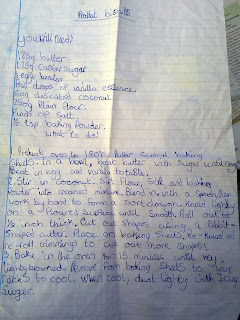 Rabbit biscuits
you will need:
125g butter
175g caster sugar
1 egg beaten
few drops of vanilla essence
50g desiccated coconut
250g plain flour
Pinch of salt
½ tsp baking powder.
what to do!
1. Preheat oven to 180°C Butter several baking
Sheets. In a bowl, beat butter with Sugar until
Beat in egg and vanilla to table.
2. Stir in coconut. Sift Flour, Salt and baking
Powder into creamed mixture. Blend in with a
work by hand to form a Soft dough. Knead lightly
on a floured Surface until Smooth. Roll out to
¼ inch thick. Cut out Shapes using a Rabbit
Shaped cutter. Place on baking Sheets. Re-Knead and
Re-Roll trimmings to cut out more Shapes.
3. Bake in the oven for 15 minutes until
lightly browned. Remove from baking Sheets to wire
racks to cool. When cool, dust lightly with Icing
Sugar.